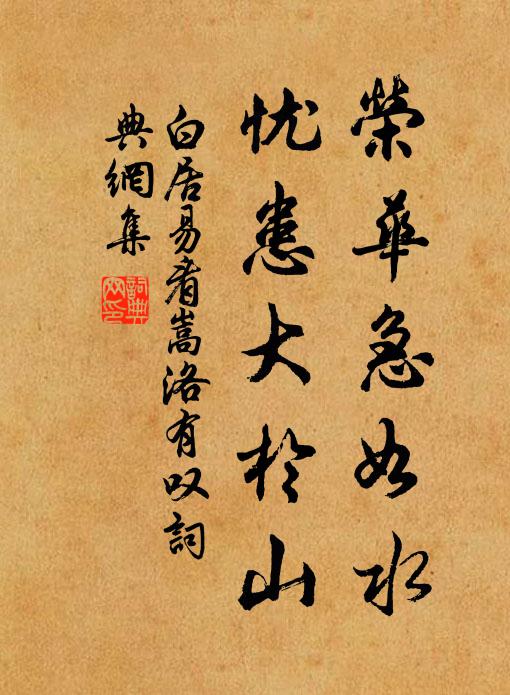 榮華急如水
忧患大於山
白居易看嵩洛有叹詞
典網集
詞典
网印